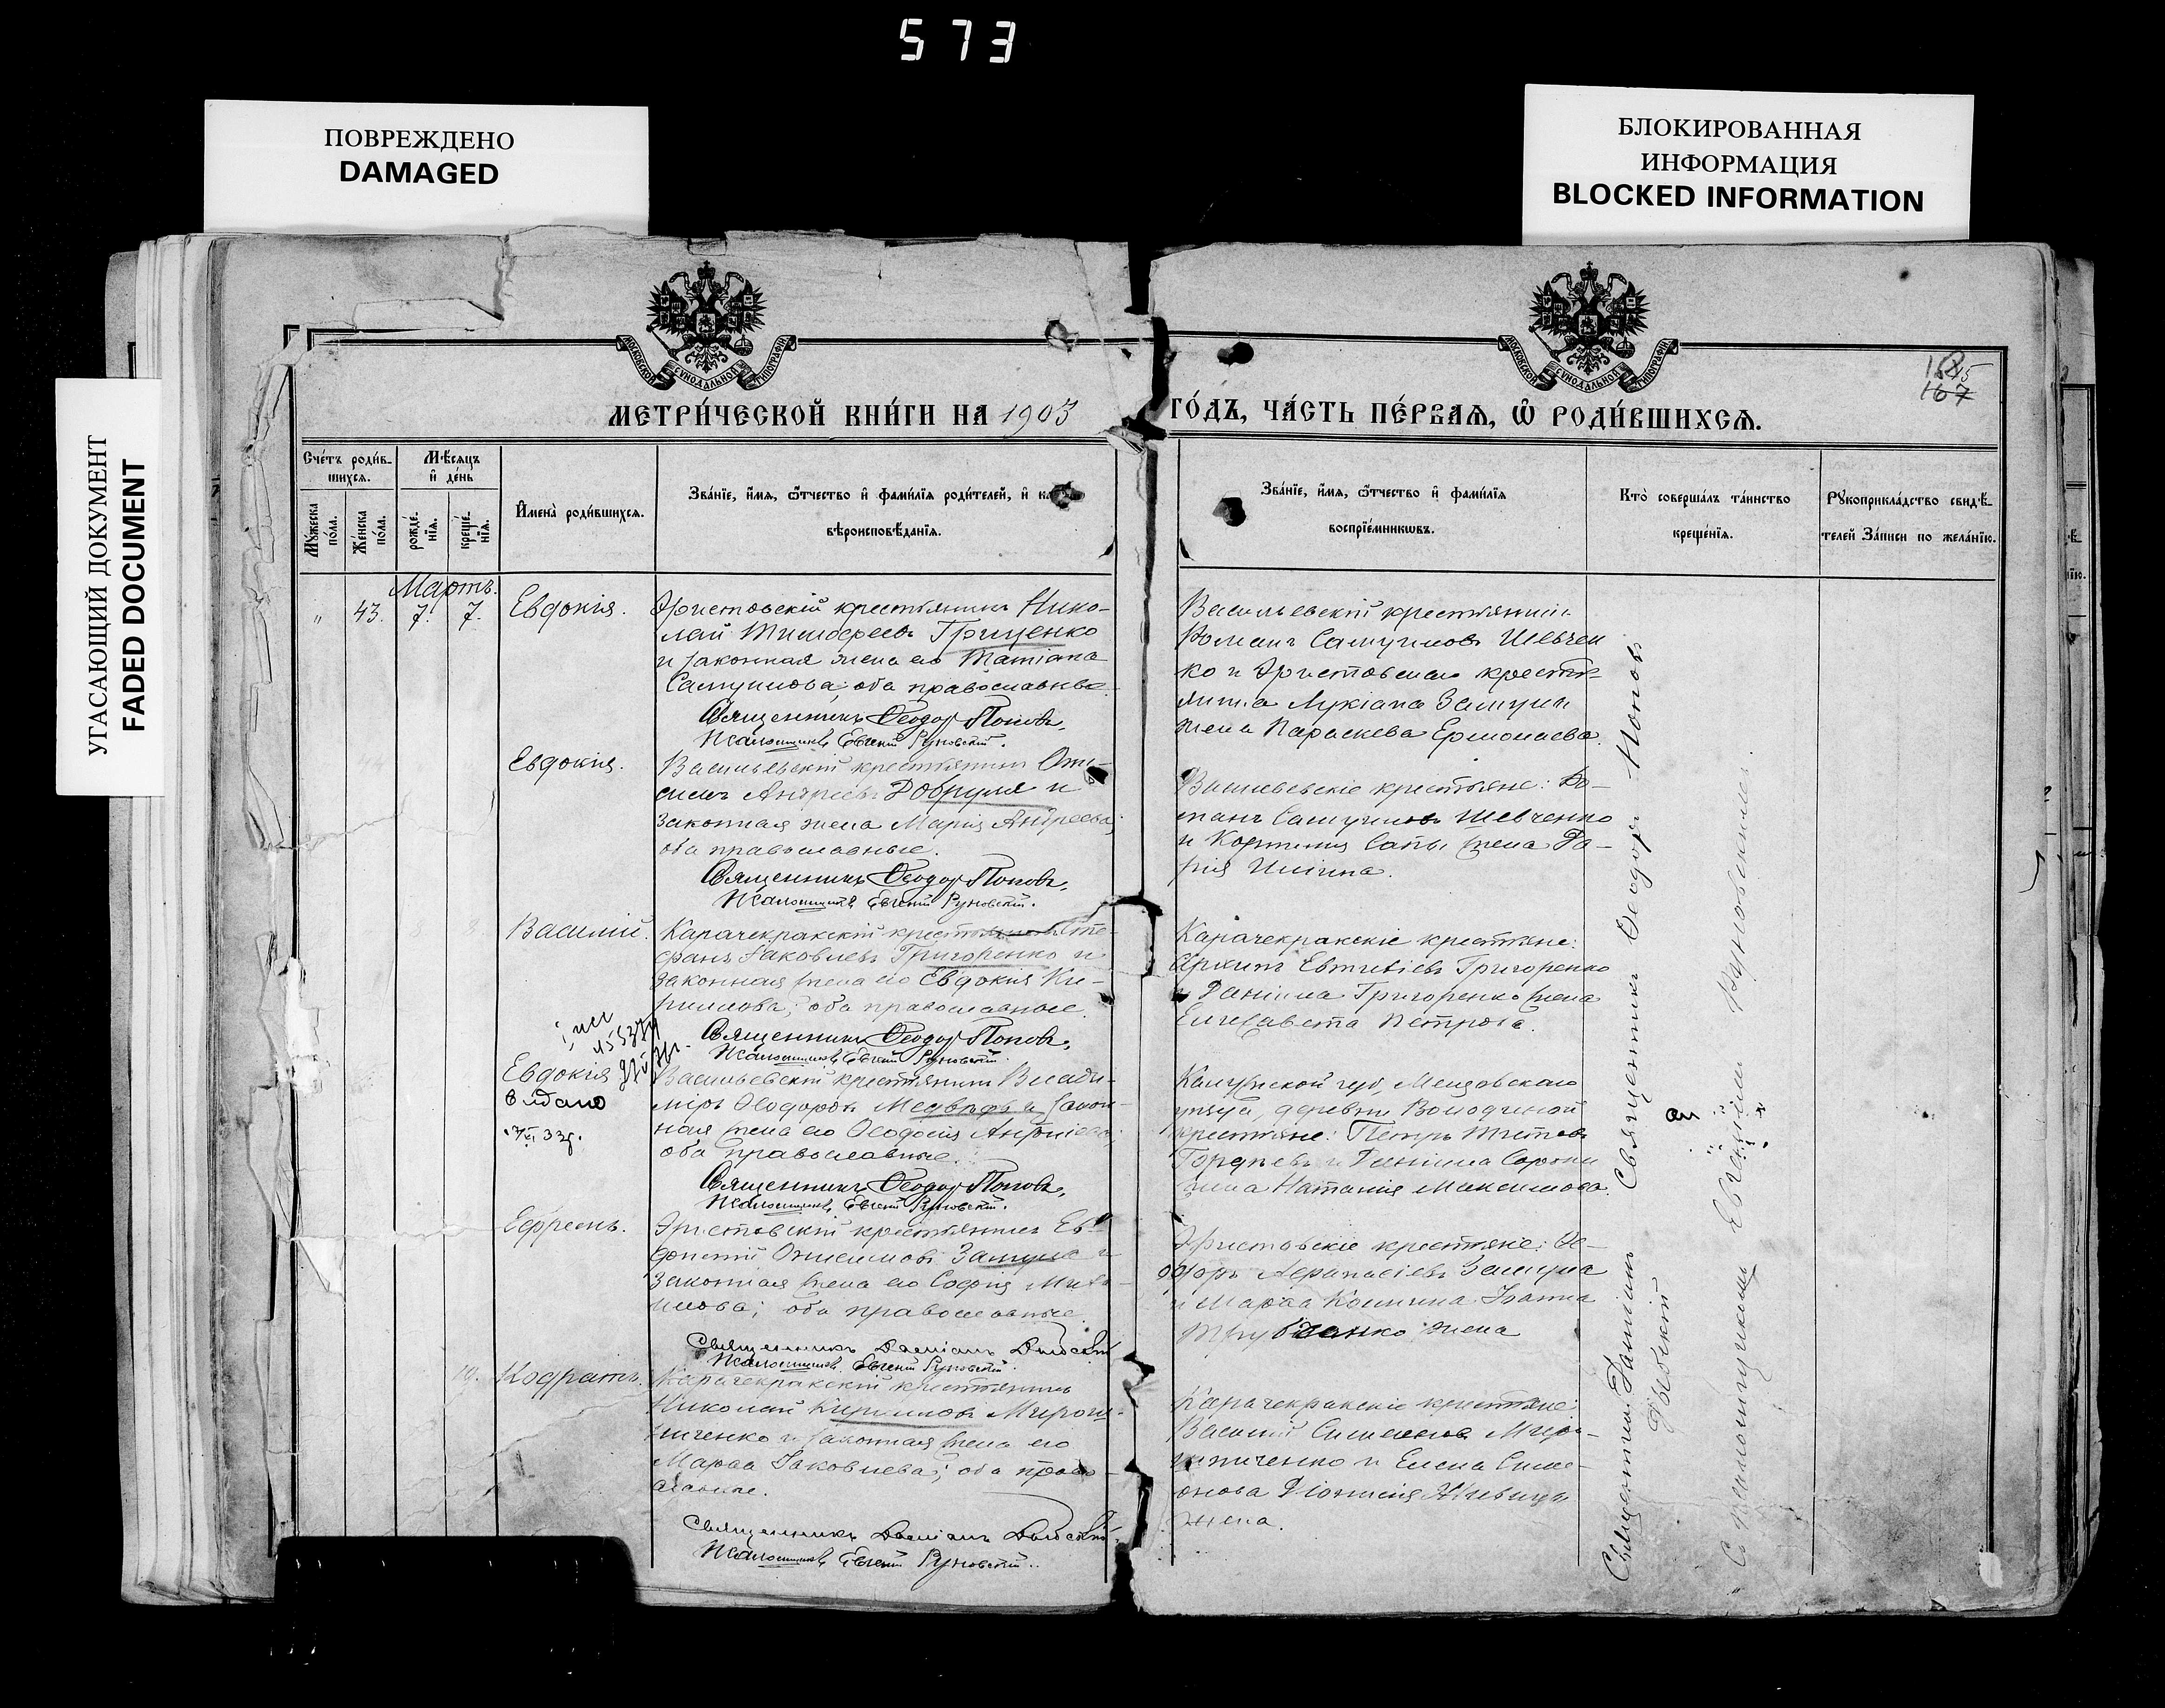 573
ПОВРЕЖДЕНО
DAMAGED
БЛОКИРОВАННАЯ
ИНФОРМАЦИЯ
BLOCKED INFORMATION
УГАСАЮЩИЙ ДОКУМЕНТ
FADED DOCUMENT
МОСКОВСКОЙ СѴНОДАЛЬНОЙ ТИПОГРАФІИ
МОСКОВСКОЙ СѴНОДАЛЬНОЙ ТИПОГРАФІИ
167
МЕТРИ́ЧЕСКОЙ КНИ́ГИ НА 1903
ГО́ДЪ, ЧА́СТЬ ПЕ́РВАЯ, Ѡ РОДИ́ВШИХСЯ.
Сче́тъ роди́в-
шихся.
Му́жеска по́ла.
Же́нска по́ла.
Мѣ́сяцъ
и де́нь
рожде́-
нія.
креще́-
нія.
Имена̀ роди́вшихся.
Зва́ніе, и́мя, ѻ́тчество и фами́лія роди́телей, и
вѣроисповѣ́данія.
Зва́ніе, и́мя, ѻ́тчество и фами́лія
воспріе́мниковъ.
Кто̀ соверша́лъ та́инство
креще́нія.
Рукоприкла́дство свидѣ́-
телей за́писи по жела́нію.
Мартъ.
" 43. 7. 7. Евдокія.
Эристовскій крестьянинъ Нико-
лай Тимоѳеевъ Гриценко
и законная жена его Татіана
Самуилова; оба православные.
Священникъ Ѳеодоръ Поповъ.
Псаломщикъ Евгеній Руновскій.
Васильевскій крестьянинъ
Романъ Самуиловъ Шевчен
ко и Эристовскаго кресть-
янина Лукіана Замулы
жена Параскева Ермолаева.
Евдокія.
Васильевскій крестьянинъ Они-
симъ Андреевъ Добруля и
законная жена Марія Андреева;
оба православные.
Священникъ Ѳеодоръ Поповъ.
Псаломщикъ Евгеній Руновскій.
Васильевскіе крестьяне: Ро-
манъ Самуиловъ Шевченко
и жена Да-
рія
Василій.
Карачекракскій крестьянинъ Сте-
фанъ Іаковлевъ Григоренко и
законная жена его Евдокія Ки-
риллова; оба православные.
Священникъ Ѳеодоръ Поповъ.
Псаломщикъ Евгеній Руновскій.
Карачекракскіе крестьяне:
Архипъ Евтихіевъ Григоренко
и Даніила Григоренко жена
Елисавета Петрова.
Евдокія
видано
Васильевскій крестьянинъ Влади-
міръ Ѳеодоровъ Медвѣдъ и закон-
ная жена его Ѳеодосія
оба православные.
Священникъ Ѳеодоръ Поповъ.
Псаломщикъ Евгеній Руновскій.
Калужской губ, Мещовскаго
уѣзда, деревни Володиной
крестьяне: Петръ Титовъ
Гордѣевъ и Даніила
жена Наталія Максимова.
Ефремъ.
Эристовскій крестьянинъ Ев-
докимъ Онисимовъ Замула и
законная жена его Софія
оба православные.
Священникъ Даміанъ
Псаломщикъ Евгеній Руновскій.
Эристовскіе крестьяне: Ѳе-
одоръ Аѳанасіевъ Замула
и Марѳа Іоанна
жена
19. Кодратъ.
Карачекракскій крестьянинъ
Николай Кирилловъ Мирош-
ниченко и законная жена его
Марѳа Іаковлева; оба право-
славные.
Священникъ Даміанъ
Псаломщикъ Евгеній Руновскій.
Карачекракскіе крестьяне
Василій Симеоновъ Миро-
шниченко и Елена Симе-
онова Діонисія
жена.
Священникъ Ѳеодоръ Поповъ
Священникъ Даміанъ
Съ псаломщикомъ Евгеніемъ Руновскимъ